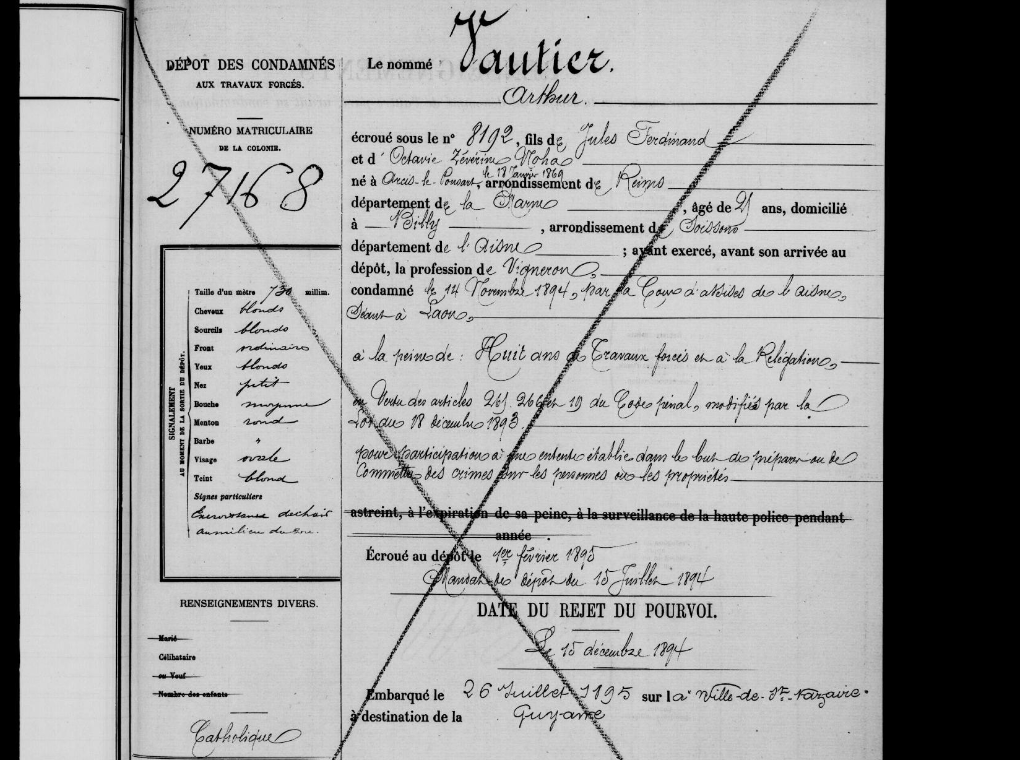 DÉPOT DES CONDAMNÉS
AUX TRAVAUX FORCÉS.
NUMÉRO MATRICULAIRE
DE LA COLONIE.
27168
Taille d'un mètre 730 millim.
Cheveux blonds
Sourcils blonds
Front ordinaire
Yeux blonds
Nez petit
Bouche moyenne
Menton rond
Barbe "
Visage ovale
Teint blond
Signes particuliers
Excroissance de chair
au milieu du
SIGNALEMENT
AU MOMENT DE LA SORTIE DU DÉPÔT.
RENSEIGNEMENTS DIVERS.
Marié
Célibataire
ou Veuf
Nombre des enfants
Catholique
Le nommé Vautier.
Arthur.
écroué sous le n° 8192, fils de Jules Ferdinand
et d' Octavie Zéverine Noha
né à Arcis-le-Ponsart, le 18 Janvier 1869 arrondissement de Reims
département de la Marne, âgé de 25 ans, domicilié
à Billy, arrondissement de Soissons
département de l'Aisne ; ayant exercé, avant son arrivée au
dépôt, la profession de Vigneron,
condamné le 14 Novembre 1894, par la Cour d'assises de l'Aisne,
Séant à Laon,
à la peine de : Huit ans de Travaux forcés et à la Relégation,
en Vertu des articles 265, 266 et 19 du Code pénal, modifiés par la
Loi du 18 décembre 1893.
pour participation à une entente établie dans le but de préparer ou de
Commettre des crimes sur les personnes ou les propriétés
astreint, à l'expiration de sa peine, à la surveillance de la haute police pendant
année .
Écroué au dépôt le 1er février 1895
Mandat de dépôt du 15 Juillet 1894
DATE DU REJET DU POURVOI.
Le 15 décembre 1894
Embarqué le 26 Juillet 1195 sur la "Ville-de-St-Nazaire"
à destination de la Guyane